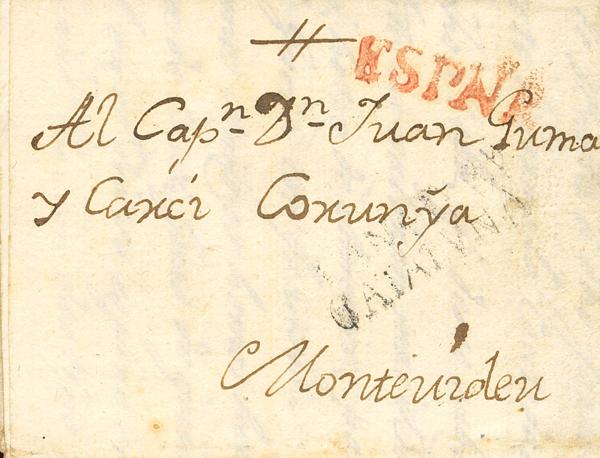 ESPAÑA
Al Capn Dn Juan Guma
y Carci Corunỹa
CATALUÑA
Montevideu